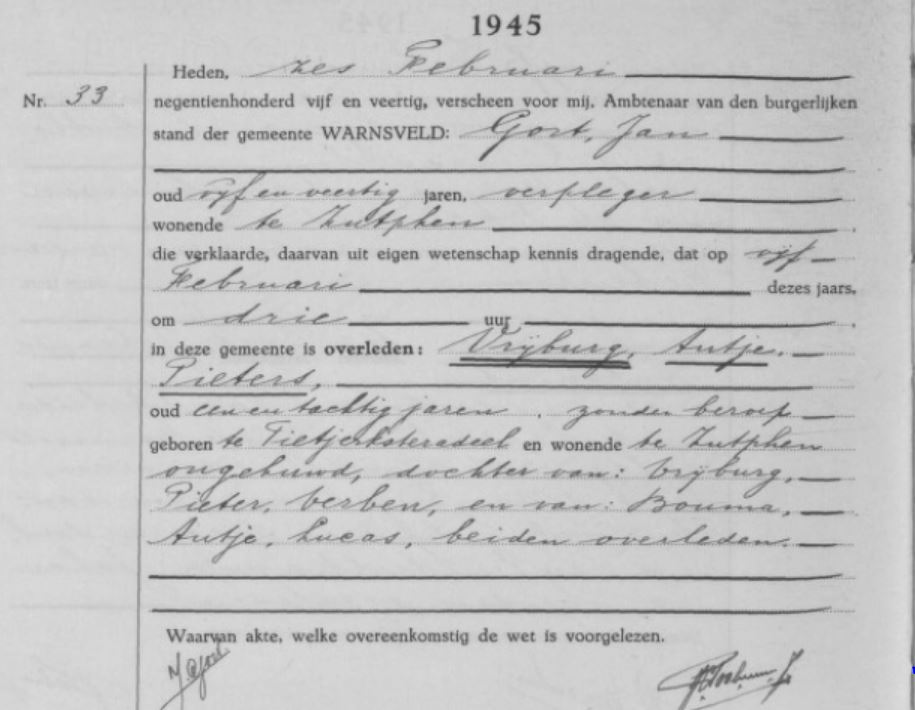 1945
Heden, zes Februari
Nr. 33 negentienhonderd vijf en veertig, verscheen voor mij, Ambtenaar van den burgerlijken
stand der gemeente WARNSVELD: Gort, Jan
oud vijf en veertig jaren, verpleger
wonende te Zutphen
die verklaarde, daarvan uit eigen wetenschap kennis dragende, dat op vijf
Februari dezes jaars,
om drie uur
in deze gemeente is overleden: Vrijburg, Antje,
Pieters,
oud een en tachtig jaren, zonder beroep
geboren te Tietjerksteradeel en wonende te Zutphen
ongehuwd, dochter van: Vrijburg,
Pieter, Berben, en van: Bouma,
Antje, Lucas, beiden overleden.
Waarvan akte, welke overeenkomstig de wet is voorgelezen.
J Gort